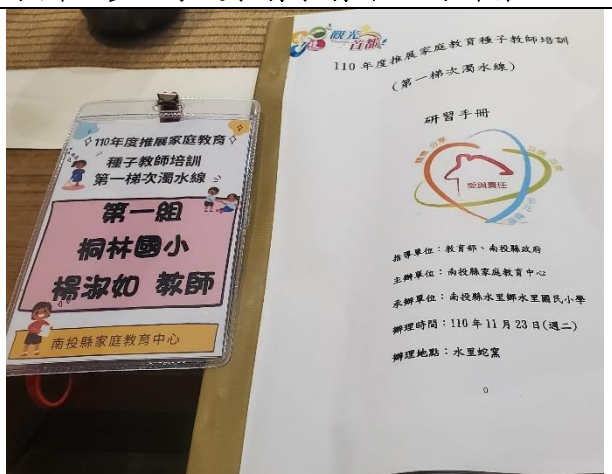 110年度推展家庭教育
種子教師培訓
第一梯次濁水線
第一組
桐林國小
楊淑如 教師
南投縣家庭教育中心
觀光
首都
110 年度推展家庭教育種子教師培訓
(第一梯次濁水線)
研習手冊
愛與責任
指導單位：教育部、南投縣政府
主辦單位：南投縣家庭教育中心
承辦單位：南投縣水里鄉水里國民小學
辦理時間：110 年 11 月 23 日(週二)
辦理地點：水里蛇窯
0